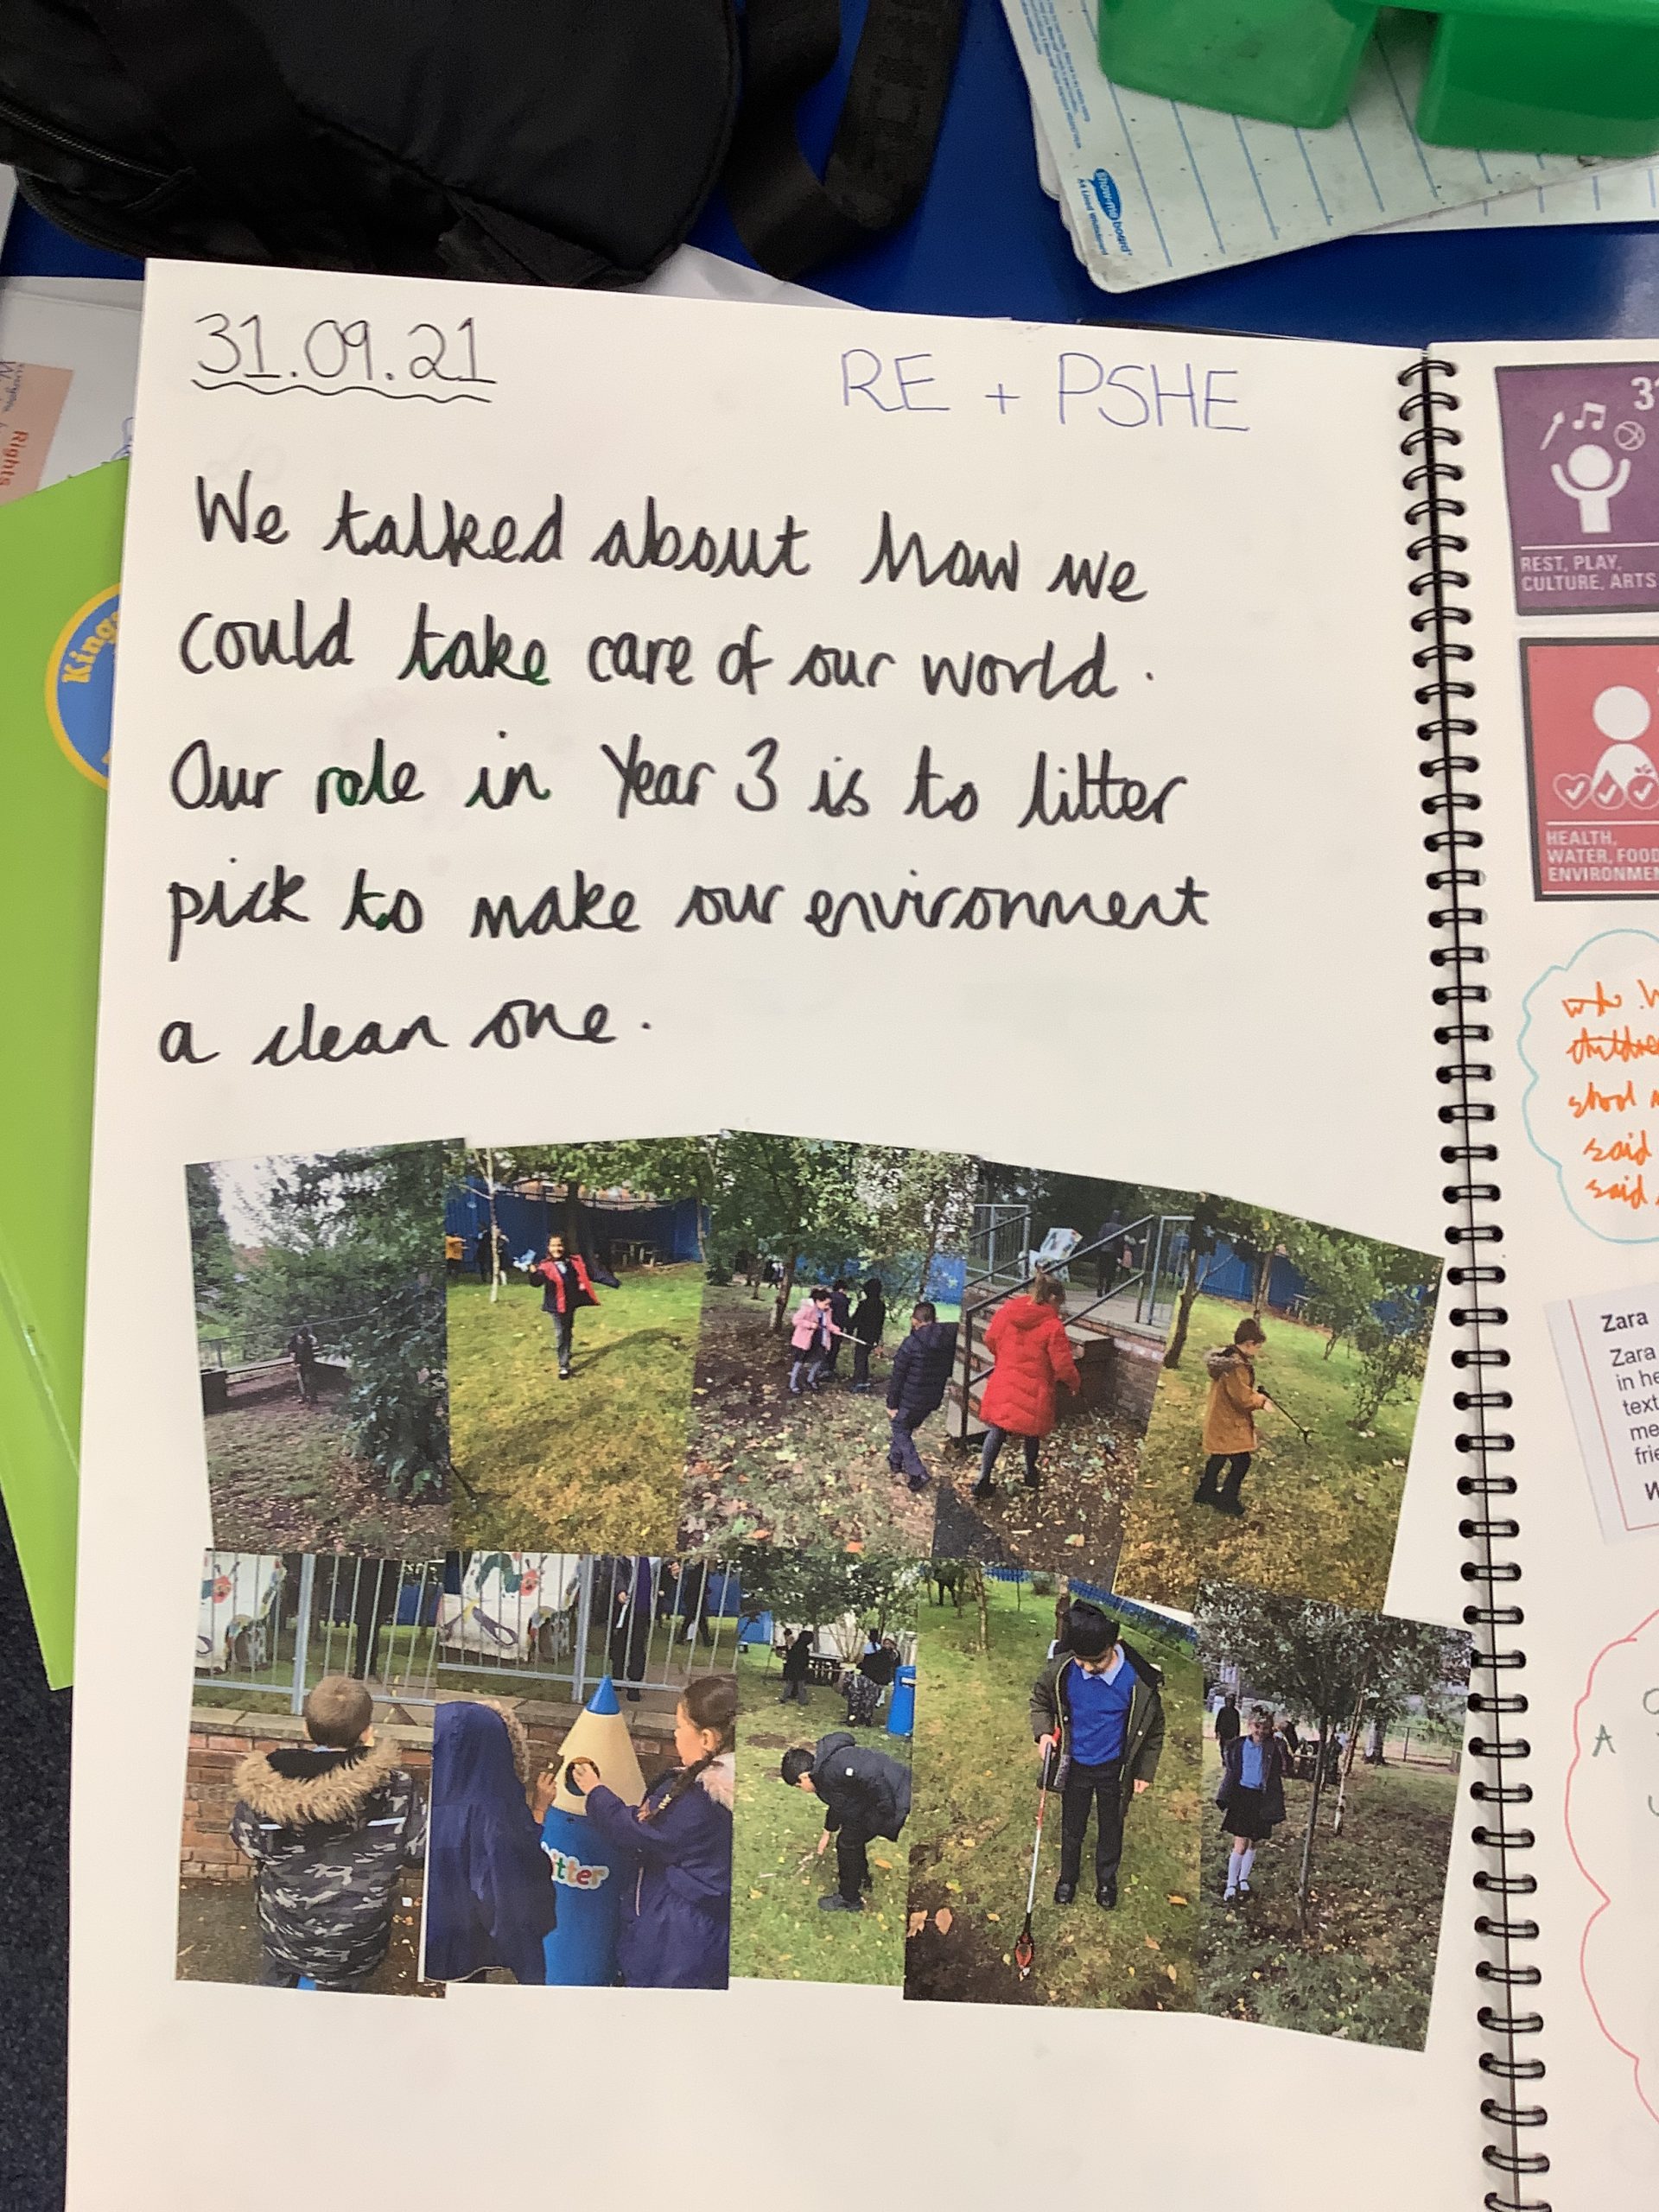 show-me board
A4 Lined Whiteboard
Rights
King
31.09.21
RE + PSHE
We talked about how we
could take care of our world.
Our role in Year 3 is to litter
pick to make our environment
a clean one.
litter
31
REST, PLAY,
CULTURE, ARTS
HEALTH,
WATER, FOOD
ENVIRONMEN
said
said
Zara
Zara
in he
text
me
frie
A